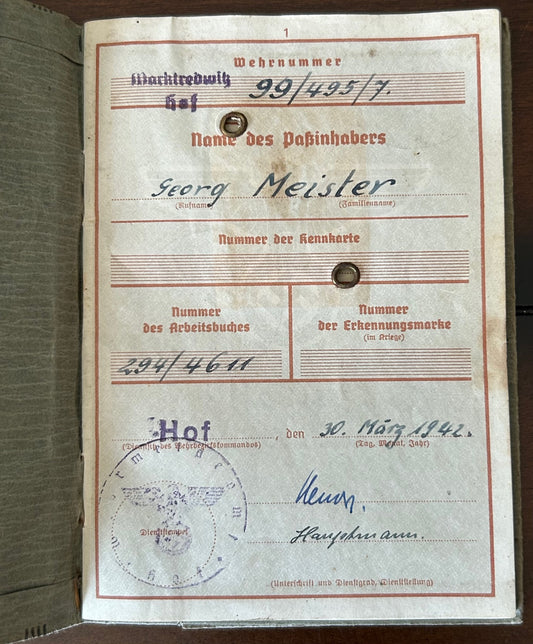 1
Wehrnummer
Marktredwitz
Hof
99/495/7.
Name des Paßinhabers
Georg Meister
(Rufname) (Familienname)
Nummer der Kennkarte
Nummer des Arbeitsbuches
Nummer der Erkennungsmarke
(im Kriege)
294/4611
Hof, den 30. März 1942.
(Dienstsitz des Wehrbezirkskommandos) (Tag, Monat, Jahr)
Dienststempel
Hauptmann.
(Unterschrift und Dienstgrad, Dienststellung)